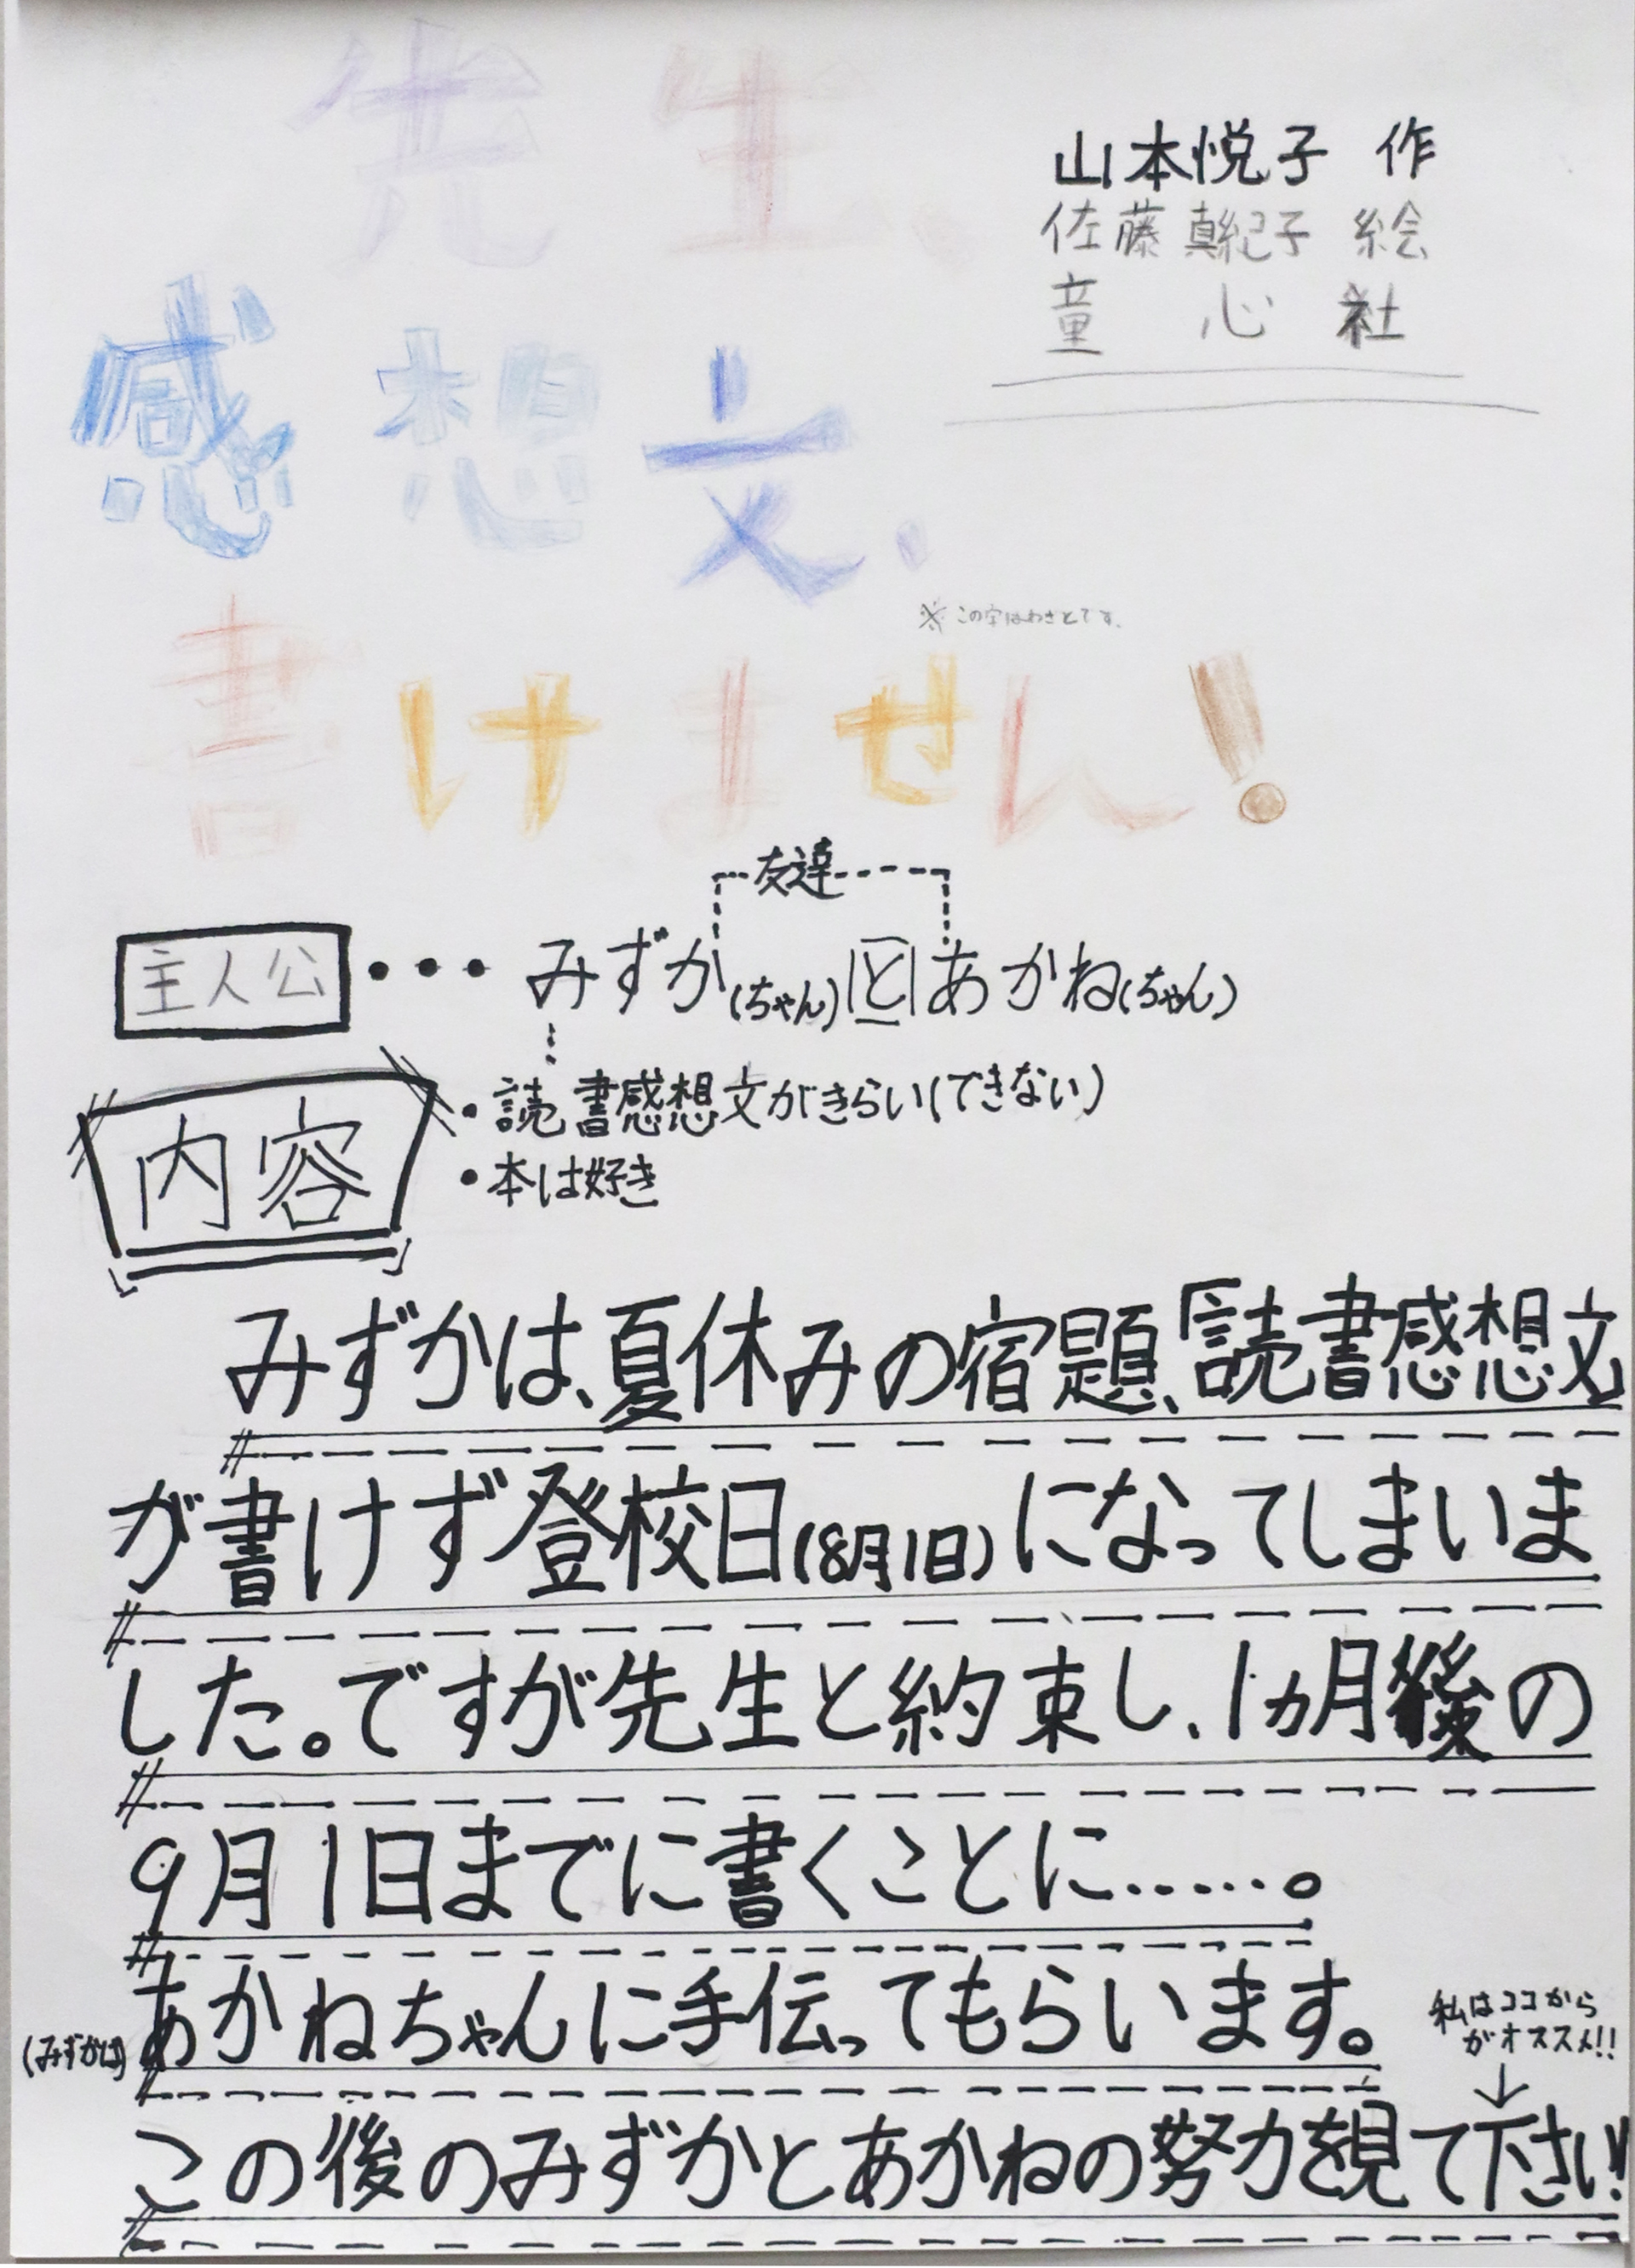 先生、
感想文、
書けません!
山本悦子 作
佐藤真紀子 絵
童心社
※この字はわざとです。
友達
主人公・・・みずか(ちゃん)とあかね(ちゃん)
・読書感想文がきらい(できない)
・本は好き
内容
みずかは、夏休みの宿題、「読書感想文」
が書けず登校日(8月1日)になってしまいま
した。ですが先生と約束し、1ヵ月後の
9月1日までに書くことに……。
(みずかは)あかねちゃんに手伝ってもらいます。
私はココから
がオススメ!!
↓
この後のみずかとあかねの努力を見て下さい!